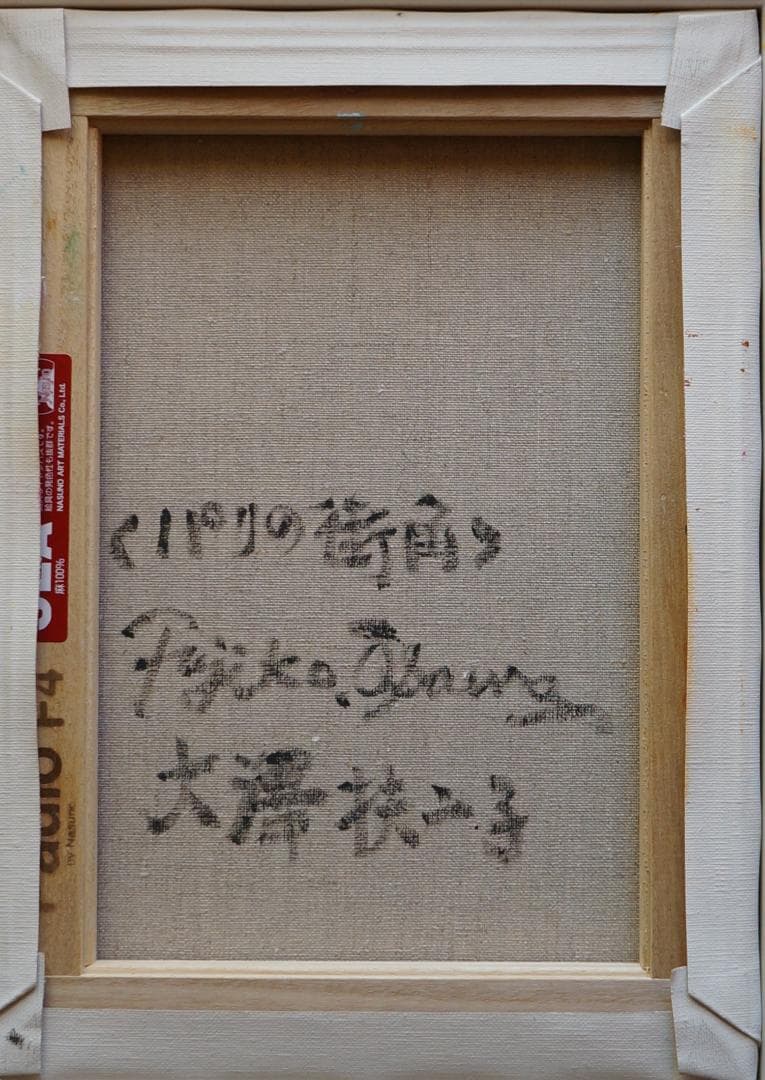 〈パリの街角〉
Fujiko. Ohsawa
大澤扶二子
絵具の発色性も抜群です。
NASUNO ART MATERIALS Co., Ltd.
麻100%
F4
by Nasuno